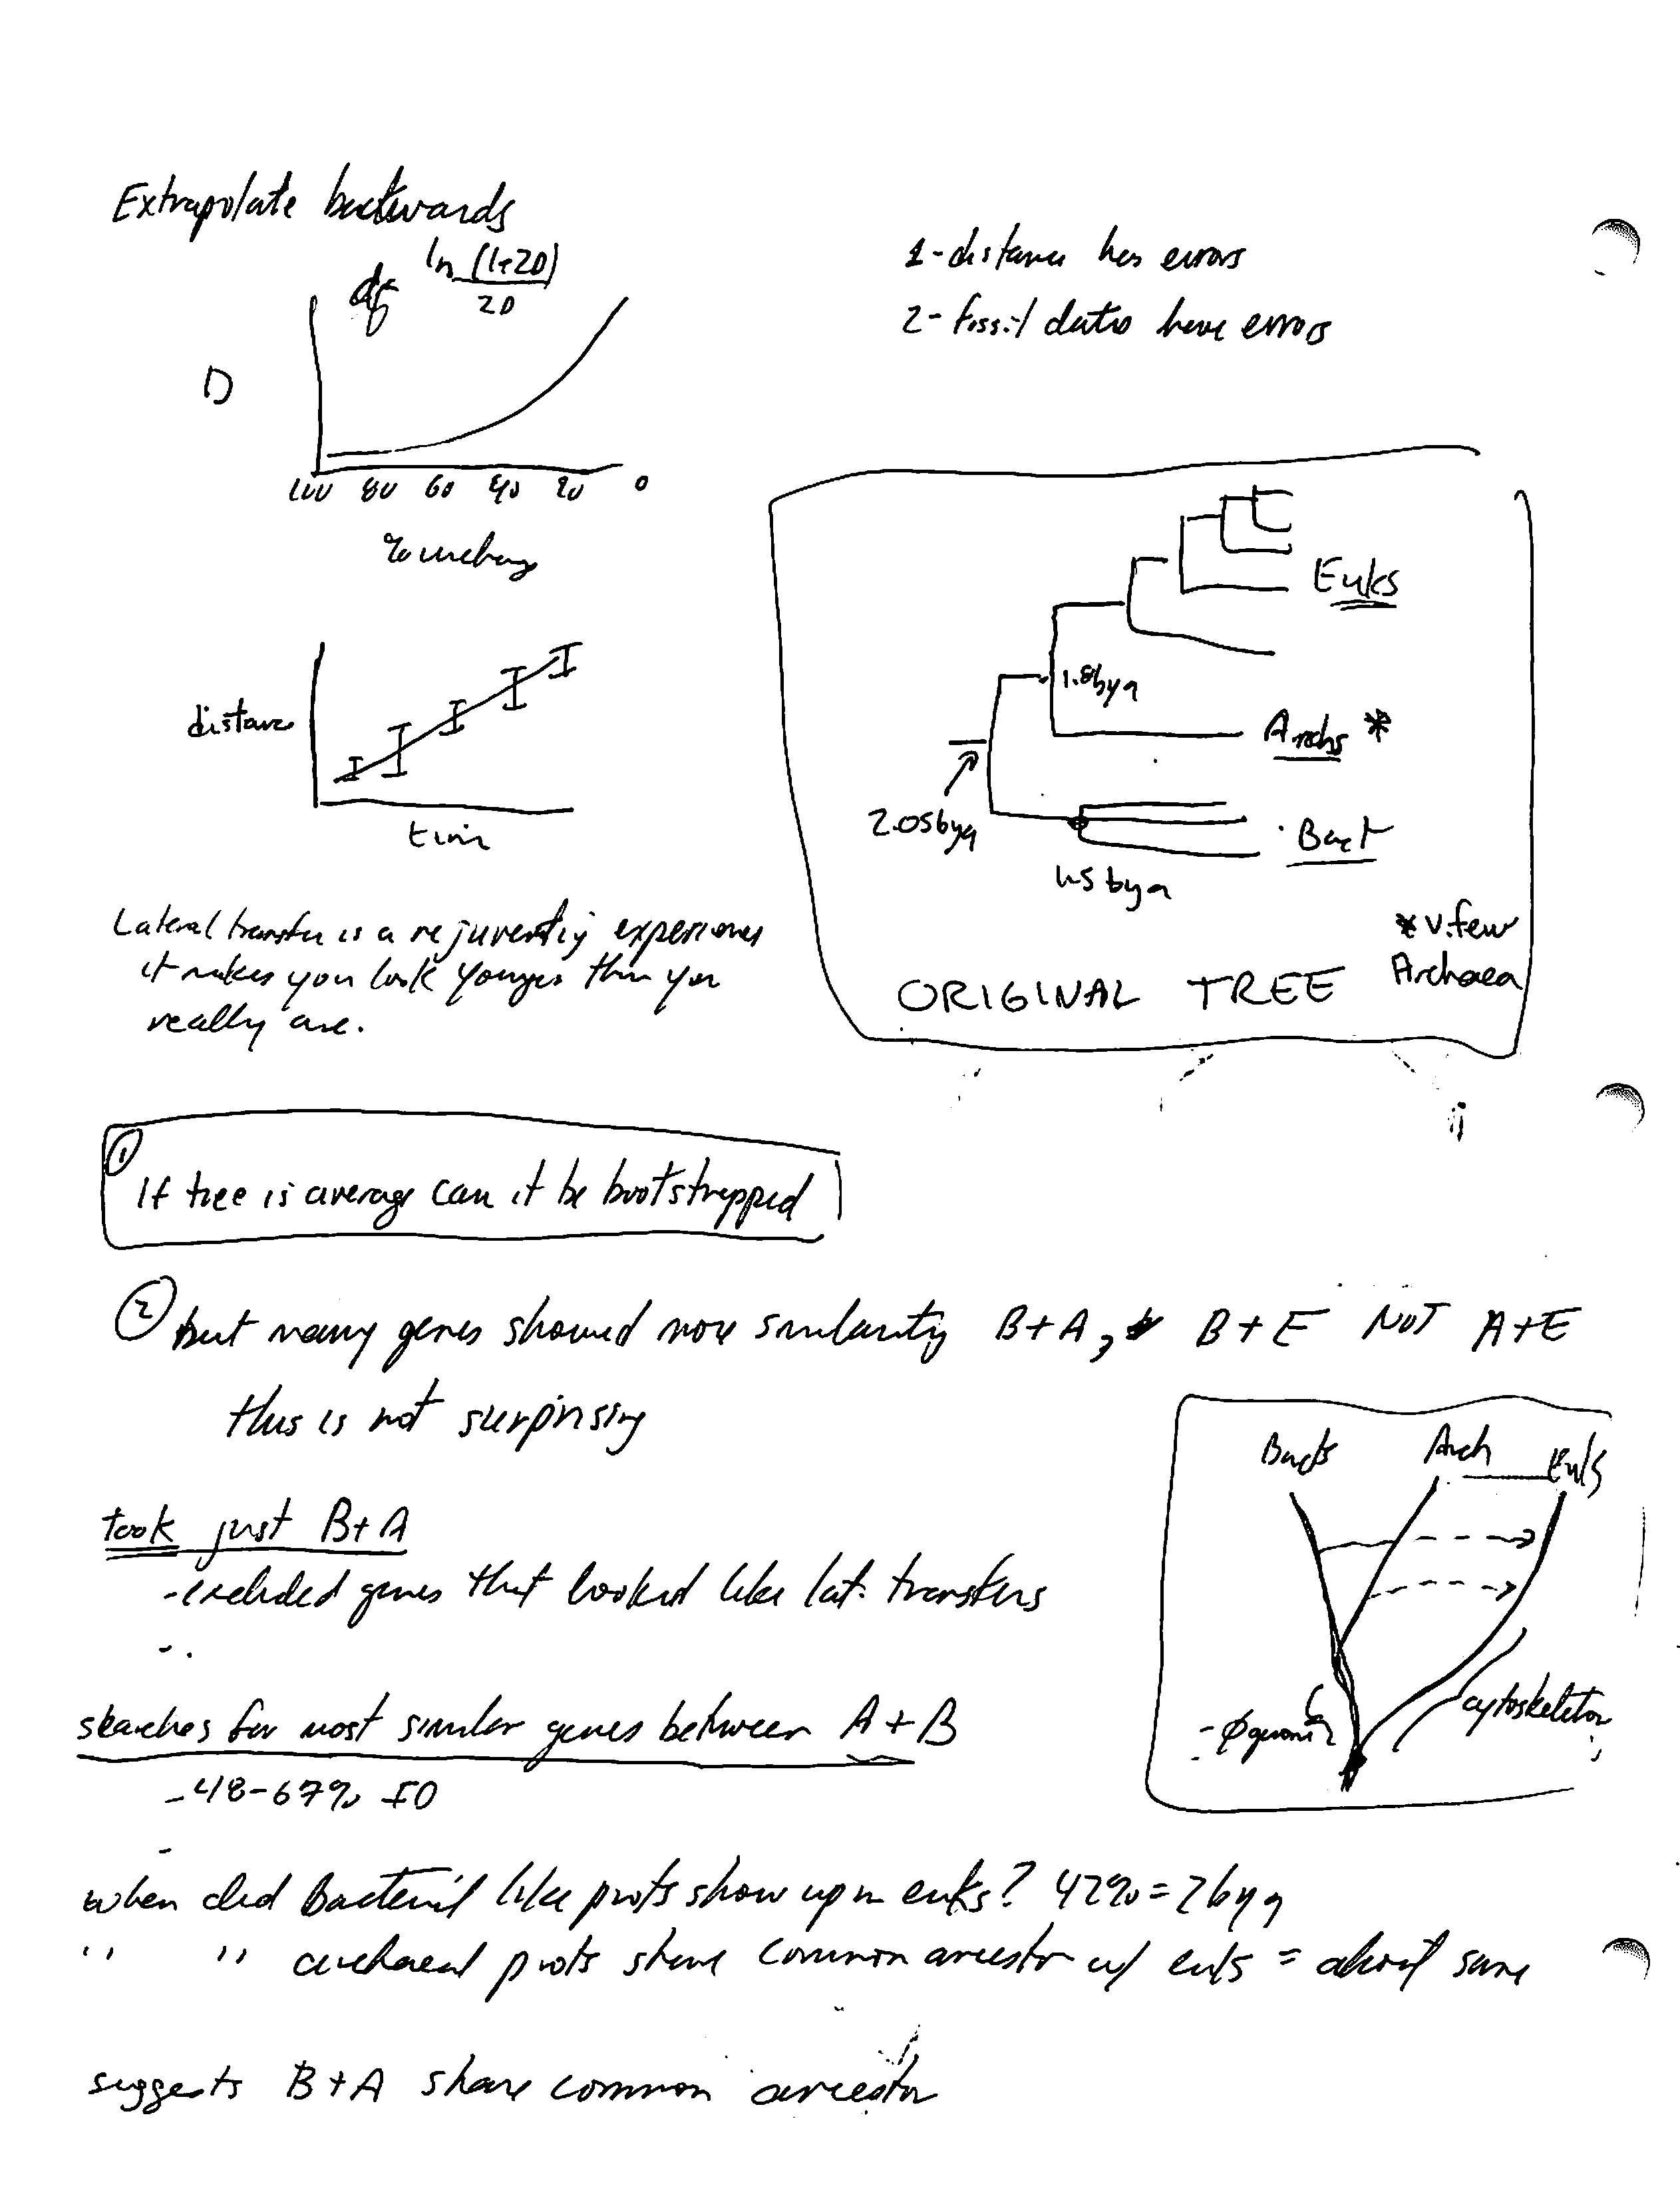 Extrapolate backwards
ln (1+2D)
2D
D
100 80 60 40 20 0
1-distance has errors
2-fossil dates have errors
distance
time
Euks
1.8bya
Archs *
2.05bya
Bact
1.5 bya
* v. few
Archaea
ORIGINAL TREE
Lateral transfer is a rejuventiy experience
it makes you look younger than you
really are.
1
If tree is average can it be bootstrapped
2 but many genes showed more similarity B+A, B+E NOT A+E
this is not surprising
Bacts Arch Euks
cytoskeleton
took just B+A
-excluded genes that looked like lat. transfers
searches for most similar genes between A+B
-48-67% ID
when did Bacterial like prots show up in euks? 42%=2bya
" " archaeal prots share common ancestor w/ euks = about same
suggests B+A share common ancestor